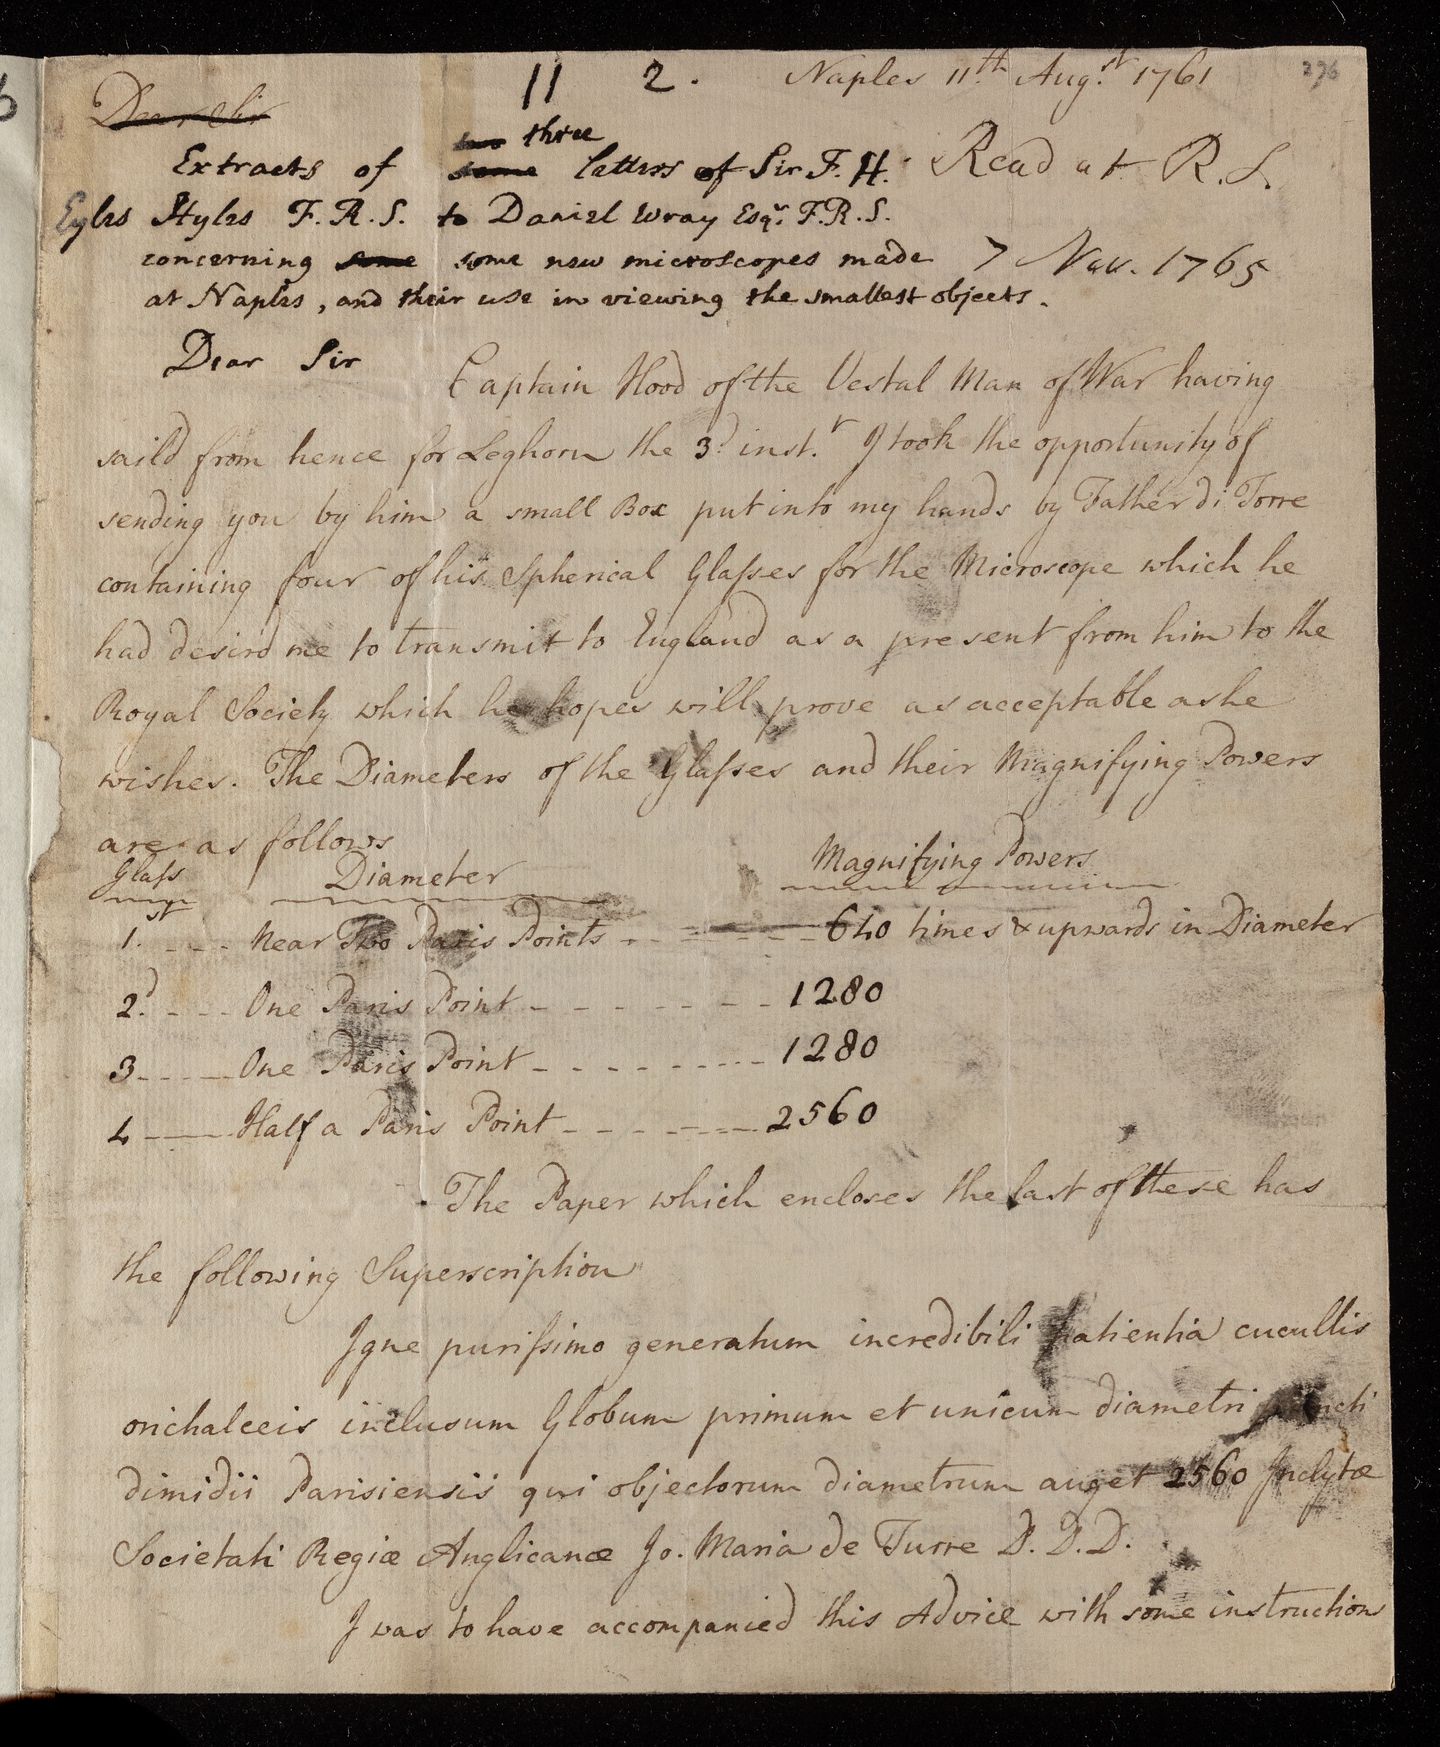 11 2. Naples 11.th Aug.st 1761 276
Dear Sir
two three
Extracts of some letters of Sir F. H. Read at R. S.
Eyles Styles F. R. S. to Daniel Wray Esqr. F. R. S.
concerning some some new microscopes made 7 Nov. 1765
at Naples, and their use in viewing the smallest objects.
Dear Sir
Captain Hood of the Vestal Man of War having
saild from hence for Leghorn the 3.d inst.t I took the opportunity of
sending you by him a small Box put into my hands by Father di Torre
containing four of his Spherical Glaſses for the Microscope which he
had desird me to transmit to England as a present from him to the
Royal Society which he hopes will prove as acceptable as he
wishes. The Diameters of the Glaſses and their Magnifying Powers
are as follows
Glaſs Diameter Magnifying Powers
1.st ---- Near Two Paris Points -------- 640 times & upwards in Diameter
2.d ---- One Paris Point -------- 1280
3 ---- One Paris Point -------- 1280
4 ---- Half a Paris Point -------- 2560
The Paper which encloses the last of these has
the following Superscription
Igne puriſsimo generatum incredibili patientia cucullis
orichalceis inclusum Globum primum et unicum diametri puncti
dimidii Parisiensis qui objectorum diametrum auget 2560 Inclytæ
Societati Regiæ Anglicanæ Jo. Maria de Turre D. D. D.
I was to have accompanied this Advice with some instructions